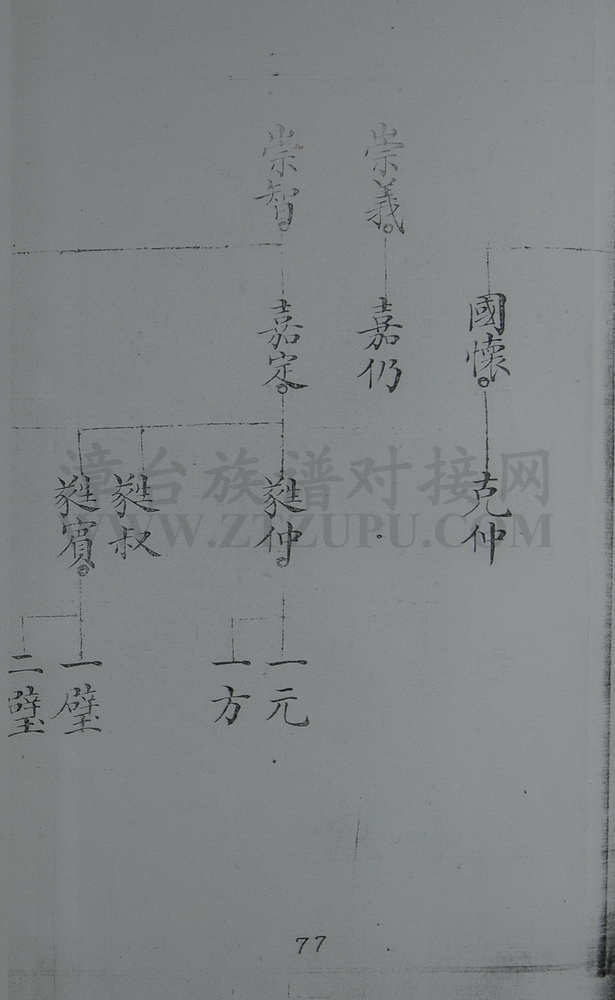 崇義
崇智
國懷
嘉仍
嘉定
克仲
蕤仲
蕤叔
蕤賓
一元
一方
一璧
二璧
漳台族谱对接网
WWW.ZTZUPU.COM
77